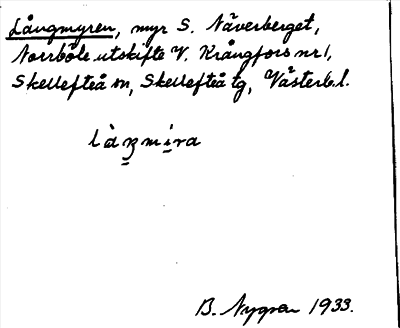 Långmyren, myr S. Näverberget,
Norrböle utskifte V. Krångfors nr 1,
Skellefteå sn, Skellefteå tg, Västerb. l.
B. Nygren 1933.